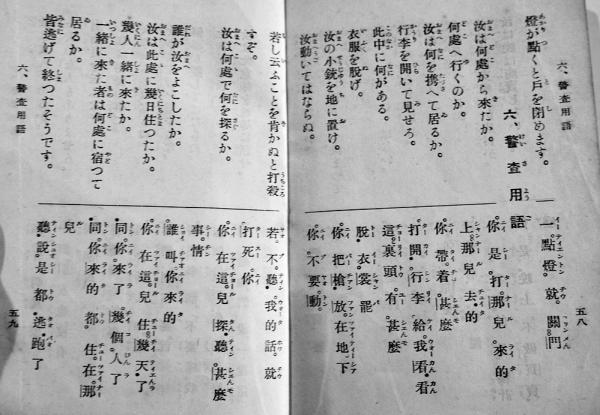 六、警査用語
五八
燈が點くと戸を閉めます。
六、警査用語
汝は何處から來たか。
何處へ行くのか。
汝は何を携へて居るか。
行李を開いて見せろ。
此中に何がある。
衣服を脱げ。
汝の小銃を地に置け。
汝動いてはならぬ。
一點燈。就關門
你是打那兒來的
上那兒去的
你帶着甚麼
打開行李給我看看
這裏頭有甚麼
脫衣裳罷
你把槍放在地下
你不要動。
若し云ふことを肯かぬと打殺
すぞ。
汝は何處で何を探るか。
誰が汝をよこしたか。
汝は此處に幾日住つたか。
幾人一緒に來たか。
一緒に來た者は何處に宿つて
居るか。
皆逃げて終つたそうです。
六、警査用語
五九
若不聽我的話。就
打死你
你在這兒探聽甚麼
事情
誰叫你來的
你在這兒住幾天了
同你來了幾個人了
同你來的都住在那
兒
聽說是都逃跑了